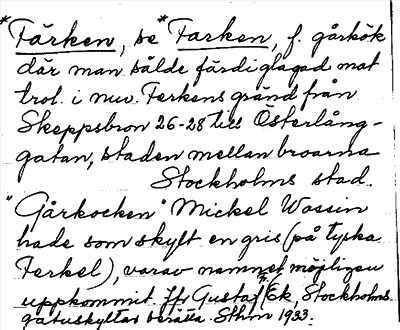 *Färken, se *Farken, f. gårkök
där man sålde färdiglagad mat
trol. i nuv. Ferkens gränd från
Skeppsbron 26-28 till Österlång-
gatan, staden mellan broarna
Stockholms stad.
"Gårkocken" Mickel Wassin
hade som skylt en gris (på tyska
Ferkel), varav namnet möjligen
uppkommit. Jfr Gustaf Ek, Stockholms
gatuskyltar berätta. Sthlm 1933.